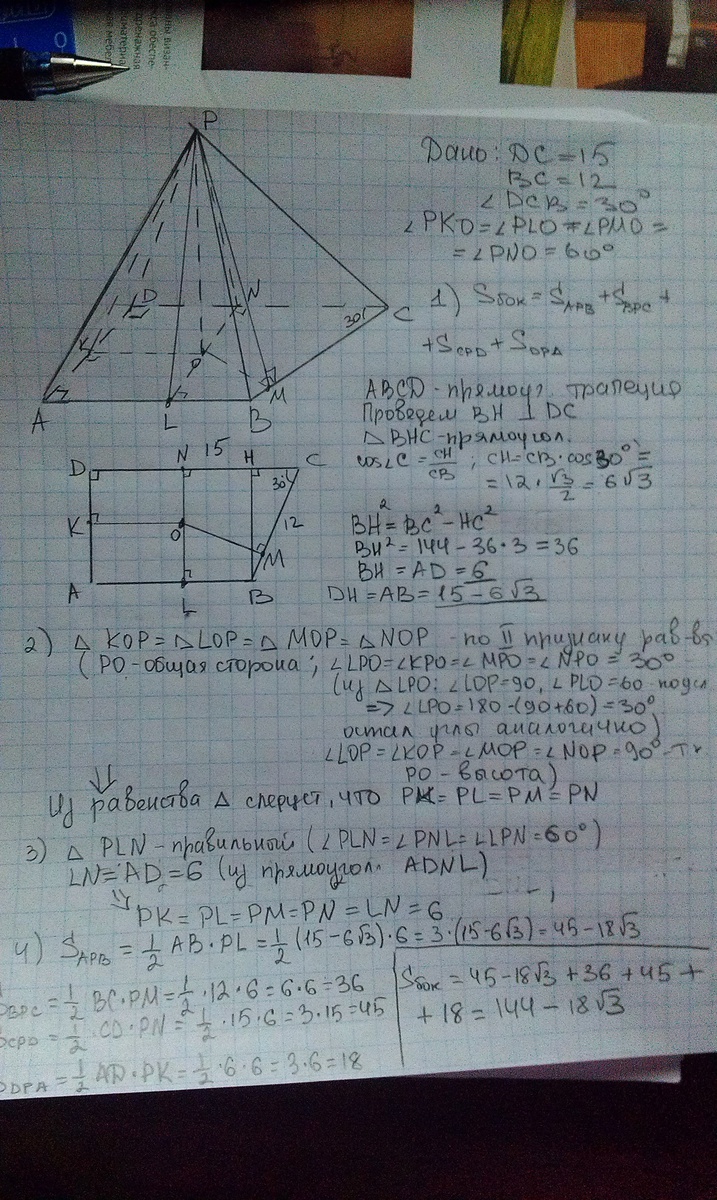 P
Дано: DC = 15
BC = 12
∠DCB = 30°
∠PKO = ∠PLO = ∠PMO =
= ∠PNO = 60°
D
N
30°
C
K
O
M
A
L
B
1) Sбок = S_APB + S_BPC +
+ S_CPD + S_DPA
ABCD - прямоуг. трапеция
Проведем BH ⊥ DC
△BHC - прямоугол.
cos∠C = CH/CB ; CH = CB · cos30° =
= 12 · √3/2 = 6√3
BH² = BC² - HC²
BH² = 144 - 36·3 = 36
BH = AD = 6
DH = AB = 15 - 6√3
D
N
15
H
C
30°
12
K
O
M
A
L
B
2) △ KOP = △LOP = △ MOP = △NOP - по II признаку рав-ва
(PO - общая сторона; ∠LPO = ∠KPO = ∠MPO = ∠NPO = 30°
(из △LPO: ∠LOP = 90, ∠PLO = 60 по усл
=> ∠LPO = 180 - (90 + 60) = 30°
остал углы аналогично)
∠LOP = ∠KOP = ∠MOP = ∠NOP = 90° - т.к
PO - высота)
⇓
Из равенства △ следует, что PK = PL = PM = PN
3) △ PLN - правильный (∠PLN = ∠PNL = ∠LPN = 60°)
LN = AD = 6 (из прямоугол. ADNL)
⇓
PK = PL = PM = PN = LN = 6
4) S_APB = 1/2 AB · PL = 1/2 (15 - 6√3) · 6 = 3 · (15 - 6√3) = 45 - 18√3
BPC = 1/2 BC · PM = 1/2 · 12 · 6 = 6 · 6 = 36
CPD = 1/2 CD · PN = 1/2 · 15 · 6 = 3 · 15 = 45
DPA = 1/2 AD · PK = 1/2 · 6 · 6 = 3 · 6 = 18
Sбок = 45 - 18√3 + 36 + 45 +
+ 18 = 144 - 18√3